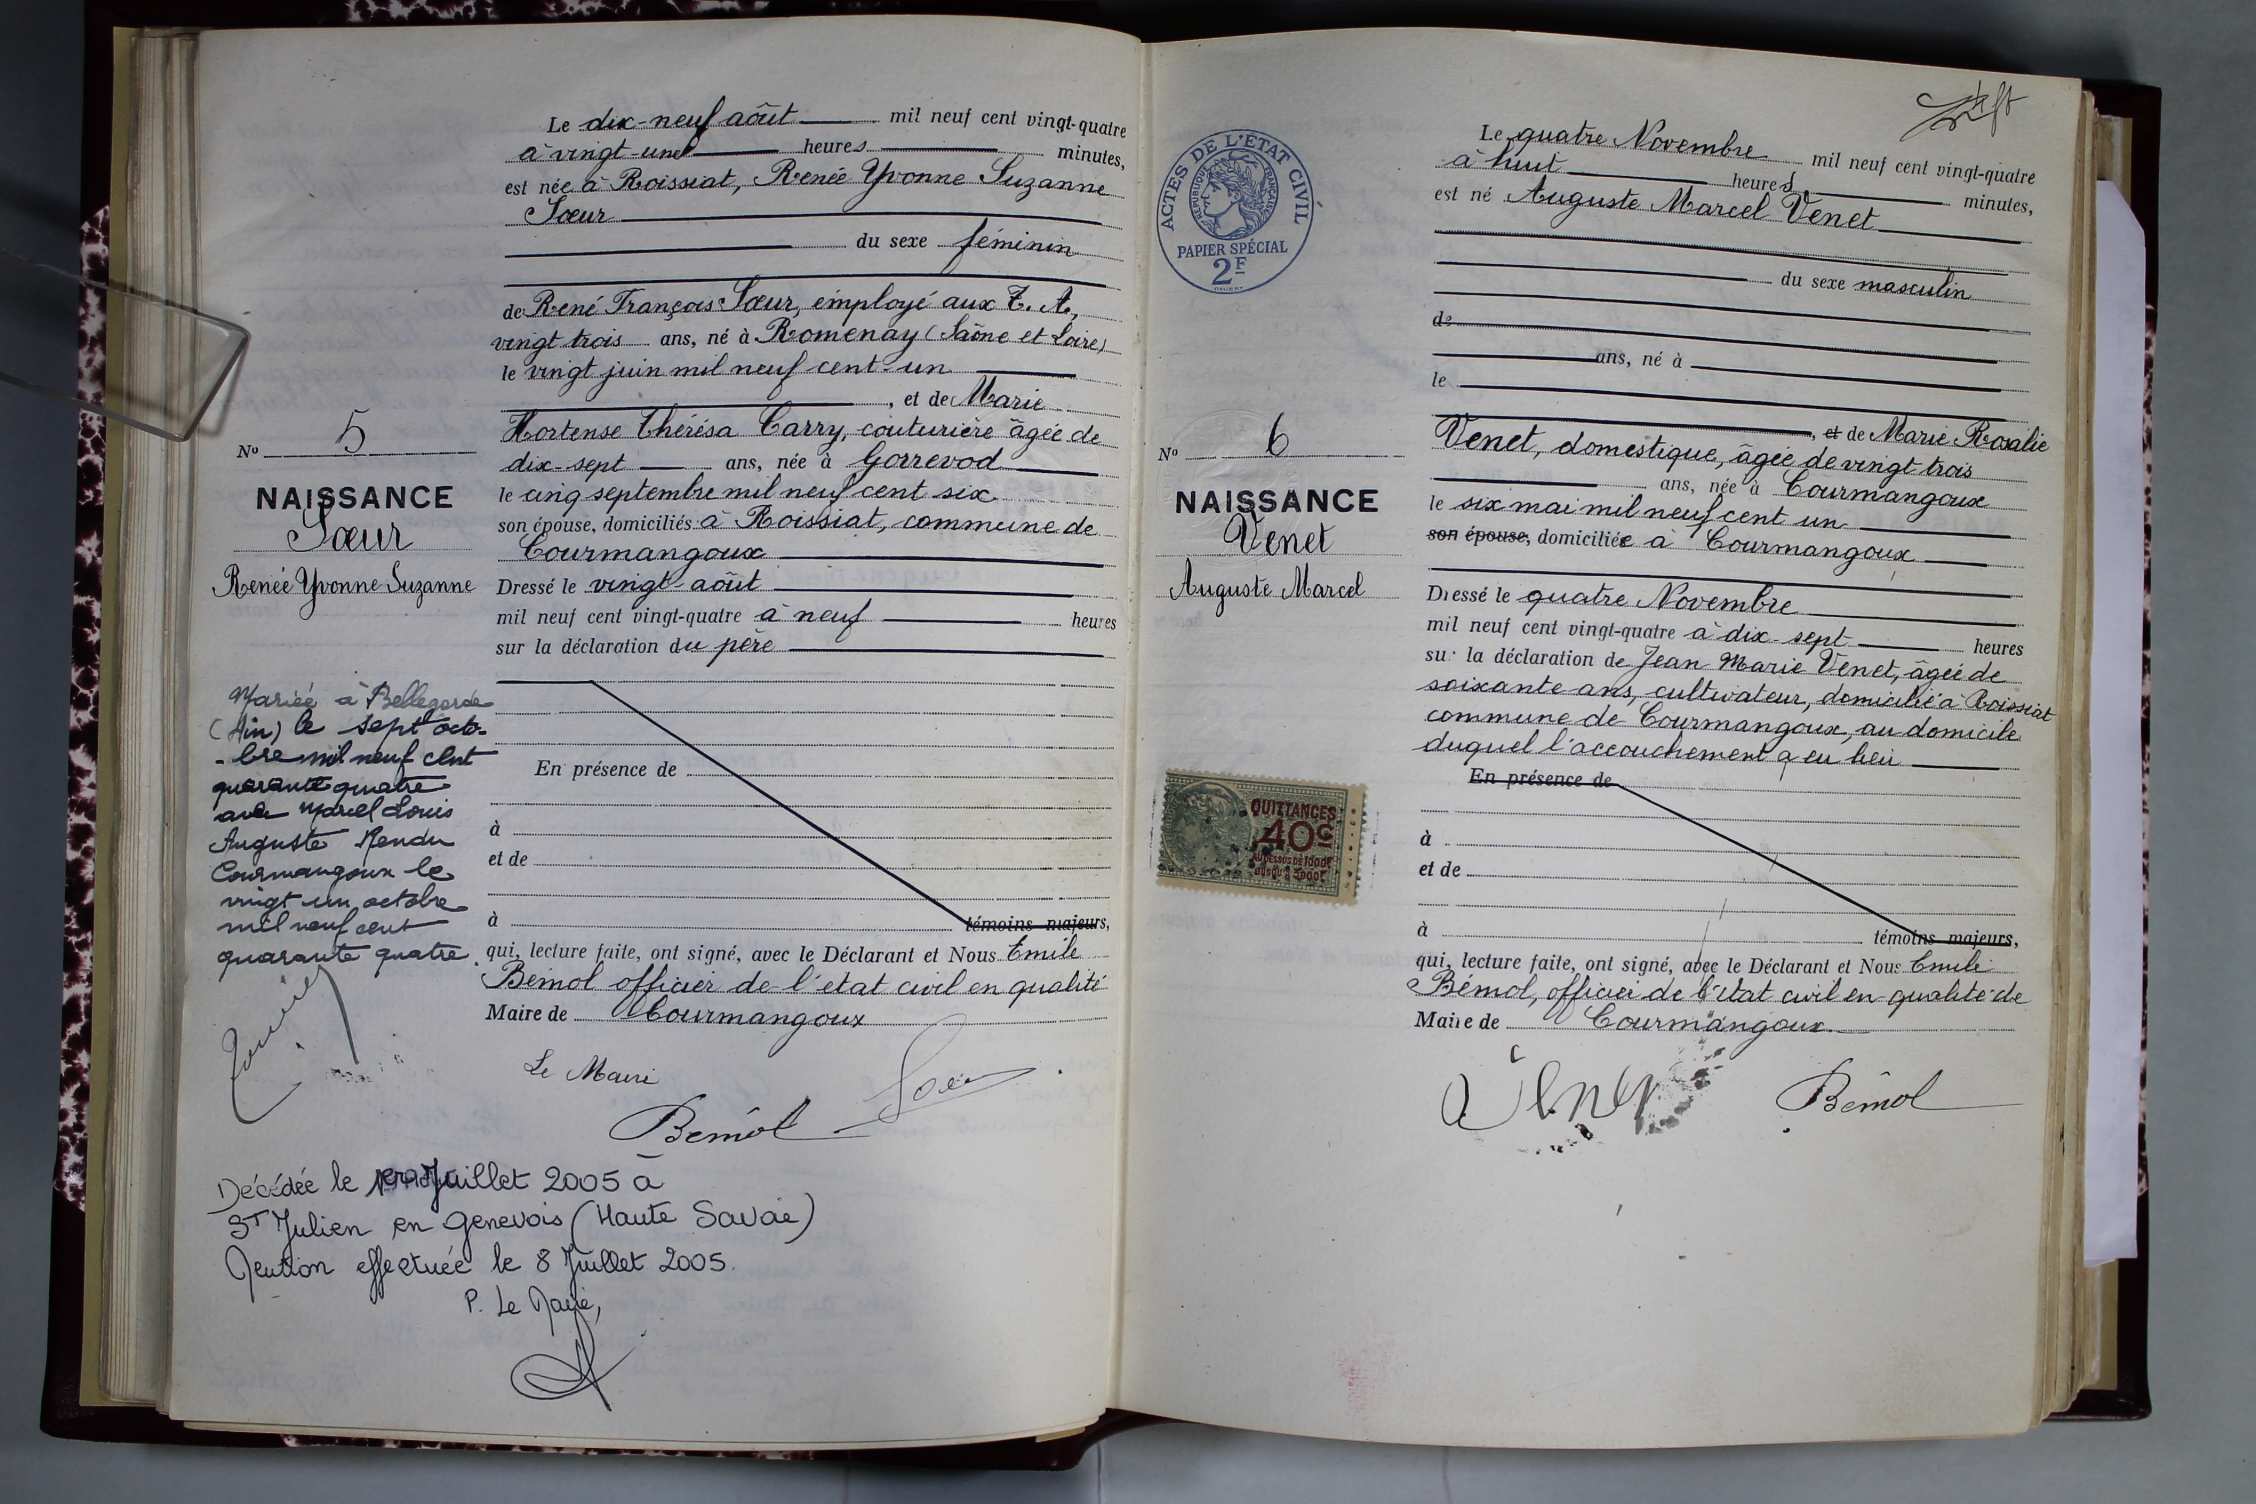 Le dix-neuf août mil neuf cent vingt-quatre
à vingt-une heures minutes,
est née à Roissiat, Renée Yvonne Suzanne
Sœur
du sexe féminin
de René François Sœur, employé aux T. A.,
vingt trois ans, né à Romenay (Saône et Loire)
le vingt juin mil neuf cent-un
, et de Marie
Hortense Thérésa Carry, couturière âgée de
dix-sept ans, née à Gorrevod
le cinq septembre mil neuf cent six
son épouse, domiciliés à Roissiat, commune de
Courmangoux
Dressé le vingt-août
mil neuf cent vingt-quatre à neuf heures
sur la déclaration du père
En présence de
à
et de
à témoins majeurs,
qui, lecture faite, ont signé, avec le Déclarant et Nous Emile
Bémol officier de l'état civil en qualité
Maire de Courmangoux
Le Maire
Bémol
Soeur
No 5
NAISSANCE
Sœur
Renée Yvonne Suzanne
Mariée à Bellegarde
(Ain) le sept octo-
-bre mil neuf cent
quarante quatre
avec Marcel Louis
Auguste Mendu
Courmangoux le
vingt un octobre
mil neuf cent
quarante quatre.
Décédée le Juillet 2005 à
St Julien en Genevois (Haute Savoie)
Mention effectuée le 8 Juillet 2005.
P. Le Maire,
ACTES DE L'ÉTAT CIVIL
RÉPUBLIQUE FRANÇAISE
PAPIER SPÉCIAL
2F
No 6
NAISSANCE
Venet
Auguste Marcel
QUITTANCES
40c
AU DESSUS DE 1000F
JUSQU'À 3000F
Le quatre Novembre mil neuf cent vingt-quatre
à huit heures minutes,
est né Auguste Marcel Venet
du sexe masculin
de
ans, né à
le
, et de Marie Rosalie
Venet, domestique, âgée de vingt trois
ans, née à Courmangoux
le six mai mil neuf cent un
son épouse, domiciliée à Courmangoux
Dressé le quatre Novembre
mil neuf cent vingt-quatre à dix-sept heures
sur la déclaration de Jean Marie Venet, âgée de
soixante ans, cultivateur, domicilié à Roissiat
commune de Courmangoux, au domicile
duquel l'accouchement a eu lieu
En présence de
à
et de
à témoins majeurs,
qui, lecture faite, ont signé, avec le Déclarant et Nous Emile
Bémol, officier de l'état civil en qualité de
Maire de Courmangoux
Venet
Bémol